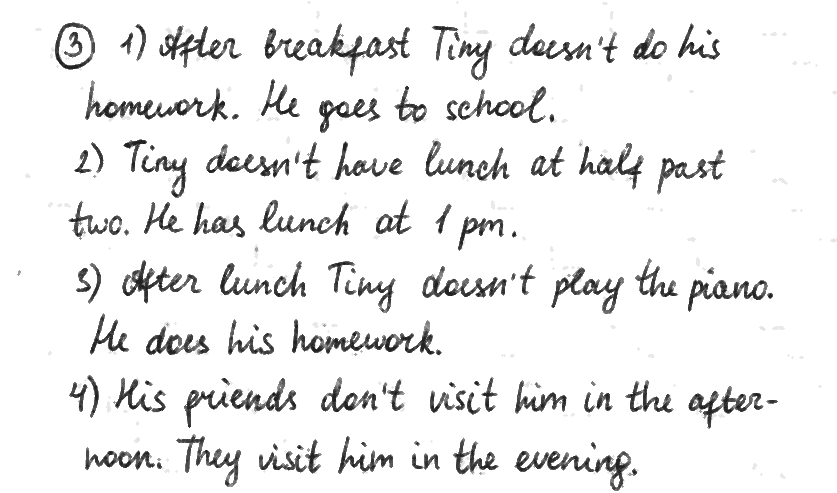 ③ 1) After breakfast Tiny doesn't do his
homework. He goes to school.
2) Tiny doesn't have lunch at half past
two. He has lunch at 1 pm.
3) After lunch Tiny doesn't play the piano.
He does his homework.
4) His friends don't visit him in the after-
noon. They visit him in the evening.